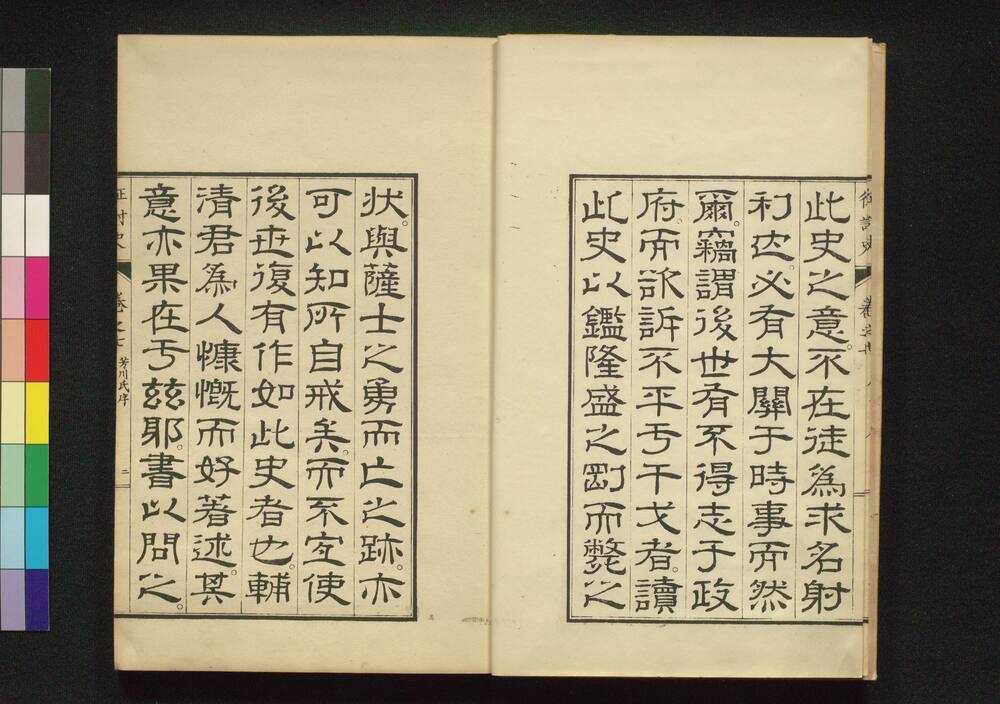 此史之意。不在徒為求名射
利也。必有大關于時事而然
爾。竊謂後世有不得志于政
府。而欲訴不平于干戈者。讀
此史以鑑隆盛之剛而斃之
狀。與薩士之勇而亡之跡。亦
可以知所自戒矣。而不宜使
後世復有作如此史者也。輔
清君為人慷慨而好著述。其
意亦果在于茲耶。書以問之。
卷之七 芳川氏序 二